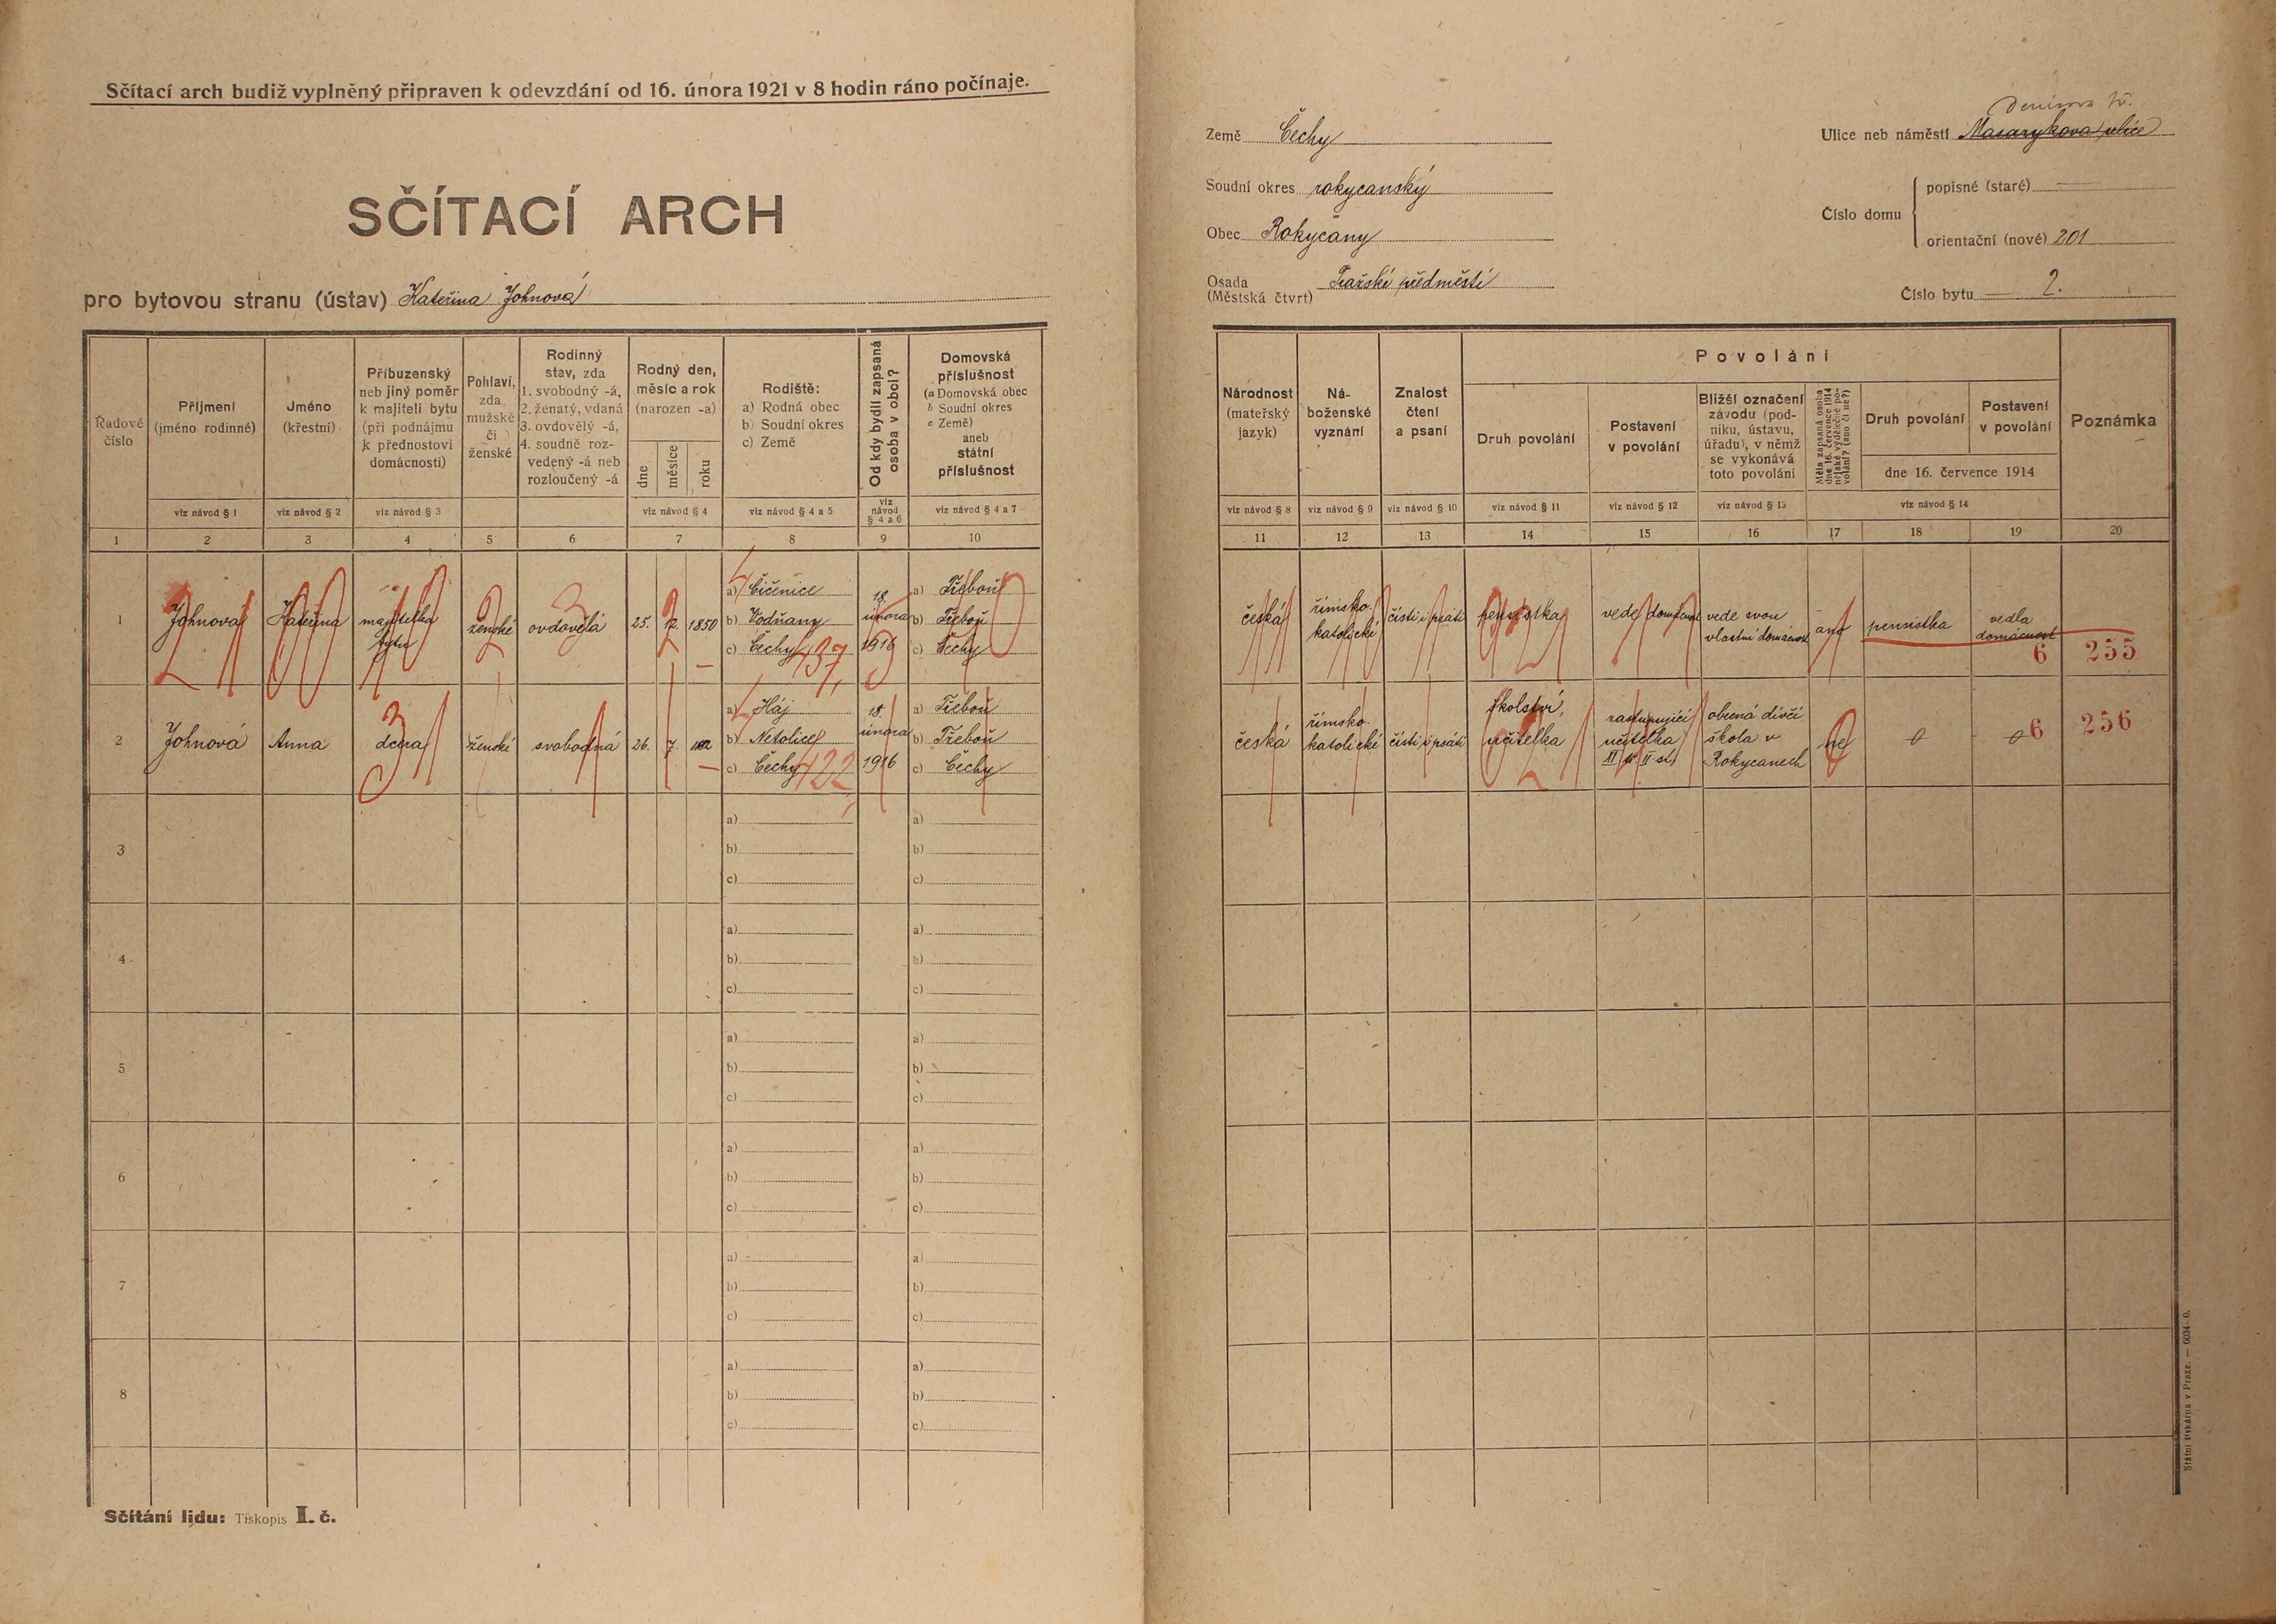 Sčítací arch budiž vyplněný připraven k odevzdání od 16. února 1921 v 8 hodin ráno počínaje.
SČÍTACÍ ARCH
pro bytovou stranu (ústav) Kateřina Johnová
Denisova tř.
Země Čechy
Ulice neb náměstí Masarykova ulice
Soudní okres rokycanský
Obec Rokycany
Osada (Městská čtvrt) Pražské předměstí
Číslo domu
popisné (staré) —
orientační (nové) 201
Číslo bytu 2.
Řadové číslo
Příjmení (jméno rodinné)
Jméno (křestní)
Příbuzenský neb jiný poměr k majiteli bytu (při podnájmu k přednostovi domácnosti)
Pohlaví, zda mužské či ženské
Rodinný stav, zda 1. svobodný -á, 2. ženatý, vdaná 3. ovdovělý -á, 4. soudně rozvedený -á neb rozloučený -á
Rodný den, měsíc a rok (narozen -a)
dne měsíce roku
Rodiště:
a) Rodná obec
b) Soudní okres
c) Země
Od kdy bydlí zapsaná osoba v obci?
Domovská příslušnost
(a Domovská obec
b Soudní okres
c Země)
aneb státní příslušnost
Národnost (mateřský jazyk)
Náboženské vyznání
Znalost čtení a psaní
Povolání
Druh povolání
Postavení v povolání
Bližší označení závodu (podniku, ústavu, úřadu), v němž se vykonává toto povolání
Měla zapsaná osoba dne 16. července 1914 nějaké výdělečné povolání? (ano či ne?)
Druh povolání
Postavení v povolání
dne 16. července 1914
Poznámka
viz návod § 1 viz návod § 2 viz návod § 3 viz návod § 4 viz návod § 4 a 5 viz návod § 4 a 6 viz návod § 4 a 7
viz návod § 8 viz návod § 9 viz návod § 10 viz návod § 11 viz návod § 12 viz návod § 13 viz návod § 14
1 2 3 4 5 6 7 8 9 10 11 12 13 14 15 16 17 18 19 20
1 Johnová Kateřina majitelka bytu ženské ovdovělá 25. 12. 1850
a) Čičenice
b) Vodňany
c) Čechy 437,
18. února 1916
a) Třeboň
b) Třeboň
c) Čechy
česká římsko-katolické čísti i psáti pensistka vede domácnost vede svou vlastní domácnost ano pensistka vedla domácnost
6 255
2 Johnová Anna dcera ženské svobodná 26. 7.
a) Háj
b) Netolice
c) Čechy 422,
18. února 1916
a) Třeboň
b) Třeboň
c) Čechy
česká římsko-katolické čísti i psáti školství, učitelka zastupující učitelka obecná dívčí škola v Rokycanech ne 0 0
6 256
3 a) b) c) a) b) c)
4 a) b) c) a) b) c)
5 a) b) c) a) b) c)
6 a) b) c) a) b) c)
7 a) b) c) a) b) c)
8 a) b) c) a) b) c)
Sčítání lidu: Tiskopis I. č.
Státní tiskárna v Praze. — 6034-0.